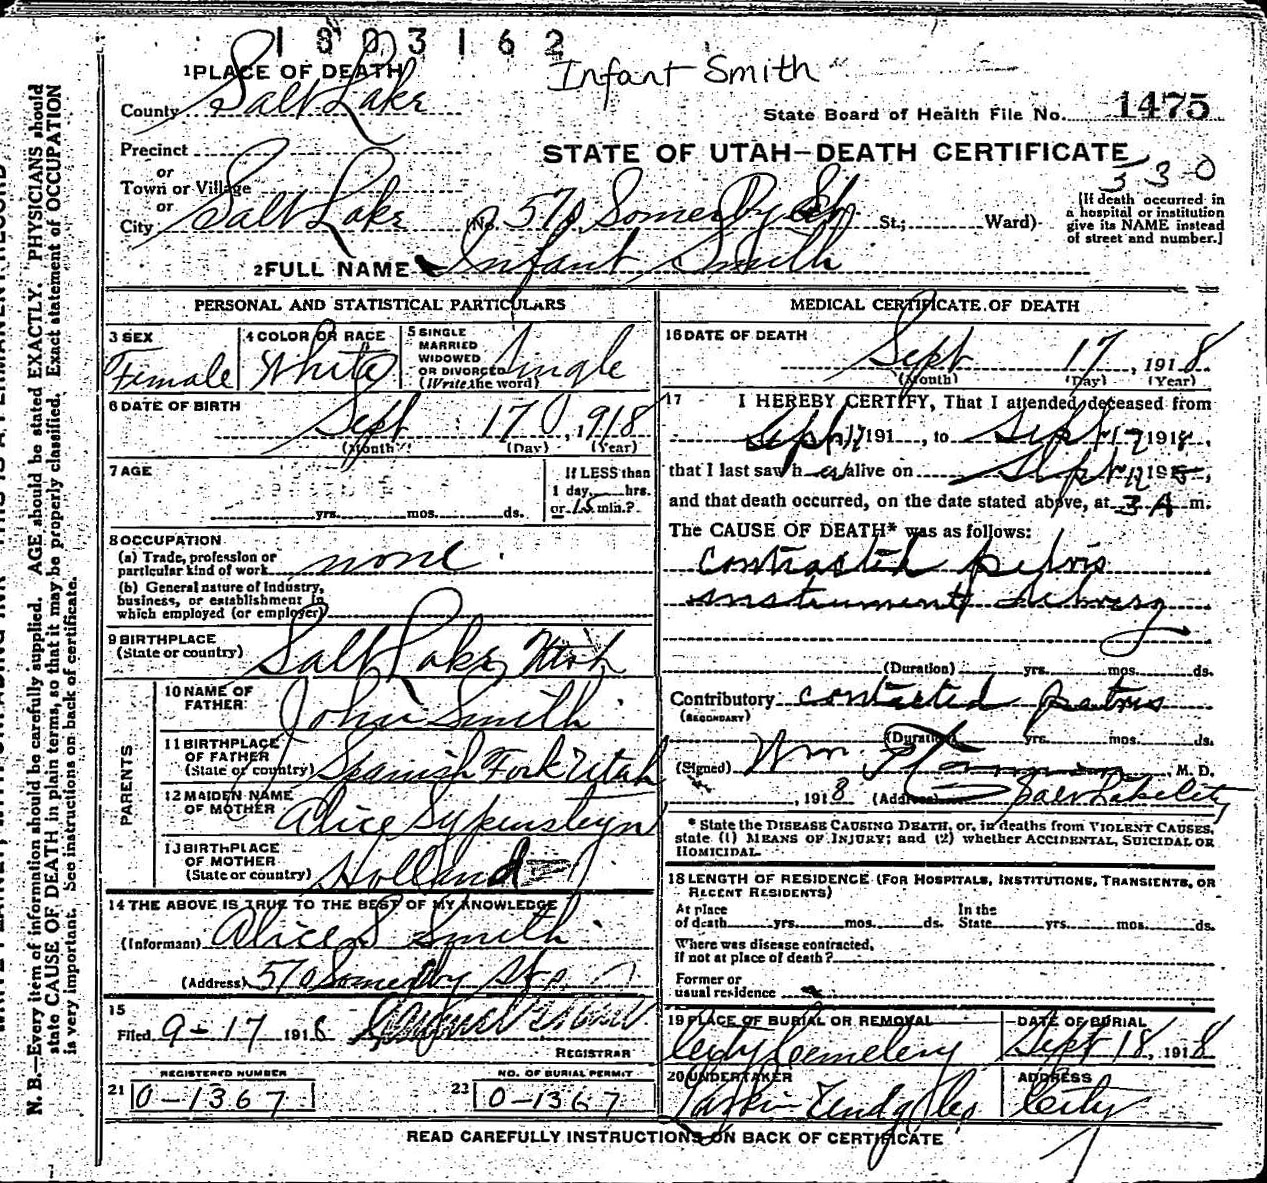 1803162
Infant Smith
1 PLACE OF DEATH
County Salt Lake
State Board of Health File No. 1475
Precinct
STATE OF UTAH—DEATH CERTIFICATE
or
Town or Village
330
or
City Salt Lake (No. 570 Somerby St; Ward)
[If death occurred in
a hospital or institution
give its NAME instead
of street and number.]
2 FULL NAME Infant Smith
PERSONAL AND STATISTICAL PARTICULARS
3 SEX
Female
4 COLOR OR RACE
White
5 SINGLE
MARRIED
WIDOWED
OR DIVORCED
(Write the word)
Single
6 DATE OF BIRTH
Sept 17, 1918
(Month) (Day) (Year)
7 AGE
yrs. mos. ds.
If LESS than
1 day, hrs.
or 15 min.?
8 OCCUPATION
(a) Trade, profession or
particular kind of work none
(b) General nature of industry,
business, or establishment in
which employed (or employer)
9 BIRTHPLACE
(State or country) Salt Lake, Utah
PARENTS
10 NAME OF
FATHER John Smith
11 BIRTHPLACE
OF FATHER
(State or country) Spanish Fork Utah
12 MAIDEN NAME
OF MOTHER Alice Sypensteyn
13 BIRTHPLACE
OF MOTHER
(State or country) Holland
14 THE ABOVE IS TRUE TO THE BEST OF MY KNOWLEDGE
(Informant) Alice S Smith
(Address) 570 Somerby St
15
Filed 9-17 1918
REGISTRAR
REGISTERED NUMBER
21 0-1367
NO. OF BURIAL PERMIT
23 0-1367
MEDICAL CERTIFICATE OF DEATH
16 DATE OF DEATH
Sept 17, 1918
(Month) (Day) (Year)
17 I HEREBY CERTIFY, That I attended deceased from
Sept 17 191 , to Sept 17 1918,
that I last saw h er alive on Sept 17 191 ,
and that death occurred, on the date stated above, at 3 A m.
The CAUSE OF DEATH* was as follows:
Contracted pelvis
instrument delivery
(Duration) yrs. mos. ds.
Contributory contracted pelvis
(SECONDARY)
(Duration) yrs. mos. ds.
(Signed) Wm. M. D.
, 1918 (Address) Salt Lake City
* State the DISEASE CAUSING DEATH, or, in deaths from VIOLENT CAUSES,
state (1) MEANS OF INJURY; and (2) whether ACCIDENTAL, SUICIDAL OR
HOMICIDAL.
18 LENGTH OF RESIDENCE (FOR HOSPITALS, INSTITUTIONS, TRANSIENTS, OR
RECENT RESIDENTS)
At place
of death yrs. mos. ds.
In the
State yrs. mos. ds.
Where was disease contracted,
if not at place of death?
Former or
usual residence
19 PLACE OF BURIAL OR REMOVAL
City Cemetery
DATE OF BURIAL
Sept 18, 1918
20 UNDERTAKER
Larkin Undg Co
ADDRESS
City
READ CAREFULLY INSTRUCTIONS ON BACK OF CERTIFICATE
N. B.—Every item of information should be carefully supplied. AGE should be stated EXACTLY. PHYSICIANS should
state CAUSE OF DEATH in plain terms, so that it may be properly classified. Exact statement of OCCUPATION
is very important. See instructions on back of certificate.